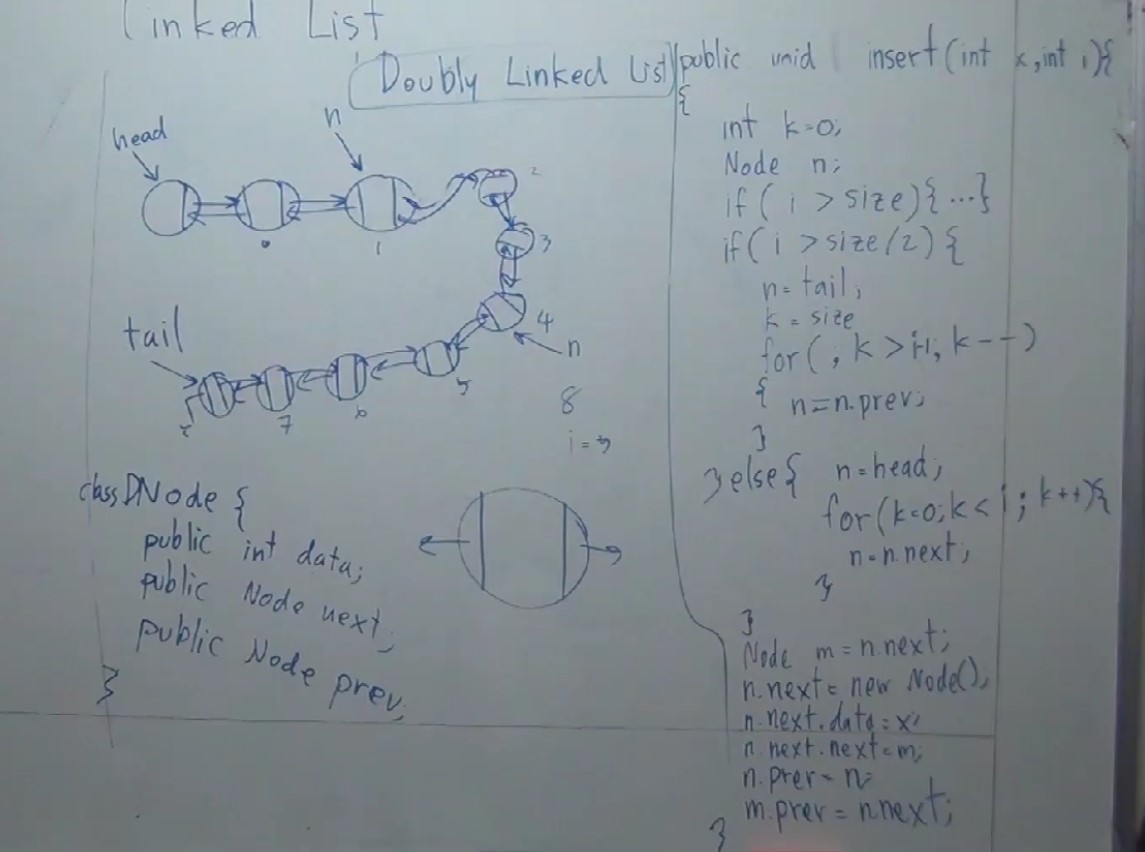 Linked List
Doubly Linked List
head
n
0
1
2
3
4
n
5
6
7
tail
8
i =
class DNode {
public int data;
public Node next;
public Node prev;
}
public void insert(int x, int i){
{
int k=0;
Node n;
if( i > size){ ...}
if( i > size/2) {
n= tail;
k = size
for( ; k > i+1; k--)
{ n=n.prev;
}
}else{ n=head;
for(k=0;k<i; k++){
n=n.next;
}
}
Node m = n.next;
n.next= new Node();
n.next.data=x;
n.next.next=m;
n.prev = n;
m.prev = n.next;
}